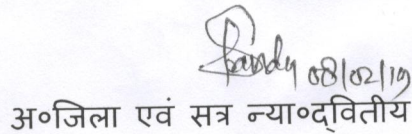 08/02/19
अ०जिला एवं सत्र न्या०द्वितीय